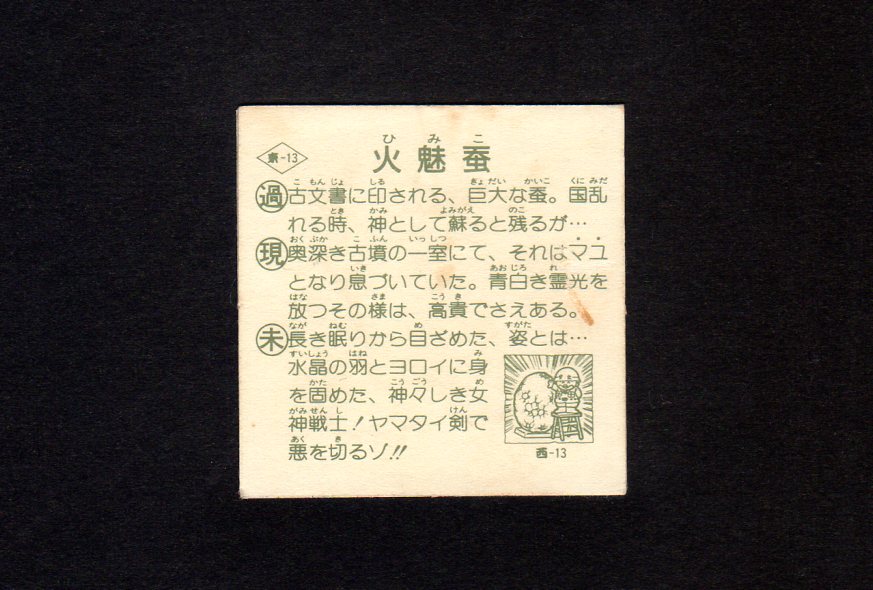 東-13
火魅蚕
ひみこ
過 古文書に印される、巨大な蚕。国乱
れる時、神として蘇ると残るが…
現 奥深き古墳の一室にて、それはマユ
となり息づいていた。青白き霊光を
放つその様は、高貴でさえある。
未 長き眠りから目ざめた、姿とは…
水晶の羽とヨロイに身
を固めた、神々しき女
神戦士!ヤマタイ剣で
悪を切るゾ!!
西-13